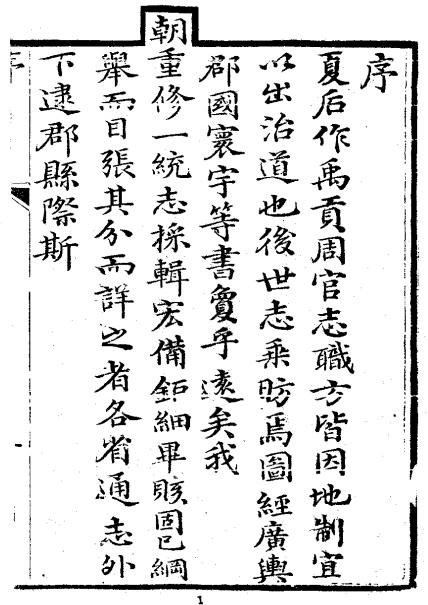 序
夏后作禹貢周官志職方皆因地制宜
以出治道也後世志乘昉焉圖經廣輿
郡國寰宇等書敻乎遠矣我
朝重修一統志採輯宏備鉅細畢賅固已綱
舉而目張其分而詳之者各省通志外
下逮郡縣際斯
序
1